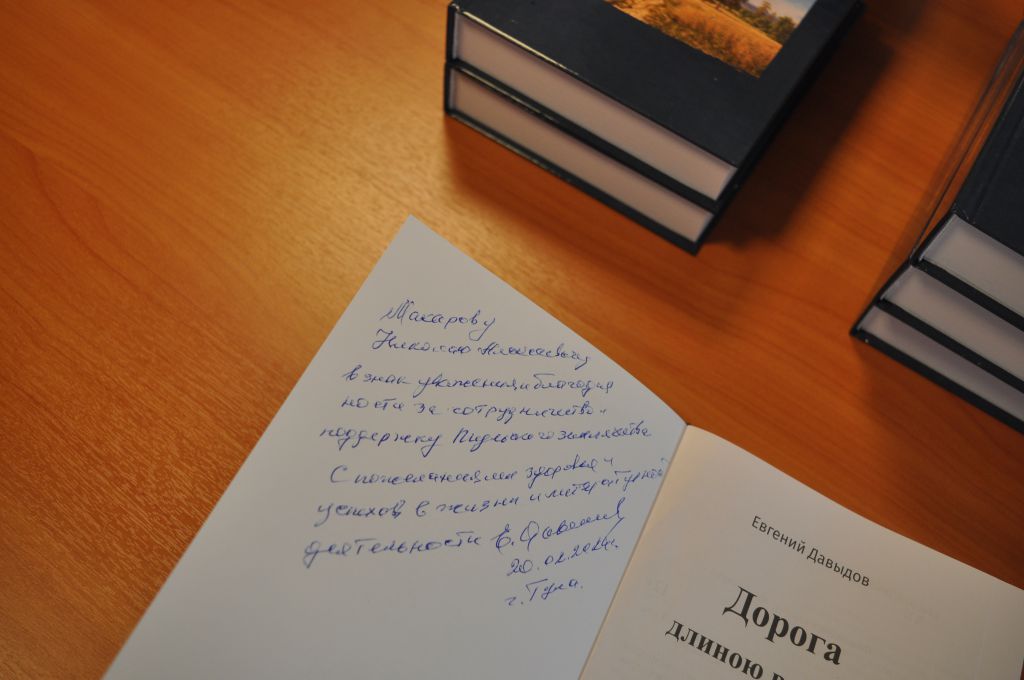 Макарову
Николаю Алексеевичу
в знак уважения и благодар
ности за сотрудничество и
поддержку землячества
С пожеланиями здоровья и
успехов в жизни и литературной
деятельности Е. Давыдов
г. Тула.
Евгений Давыдов
Дорога
длиною